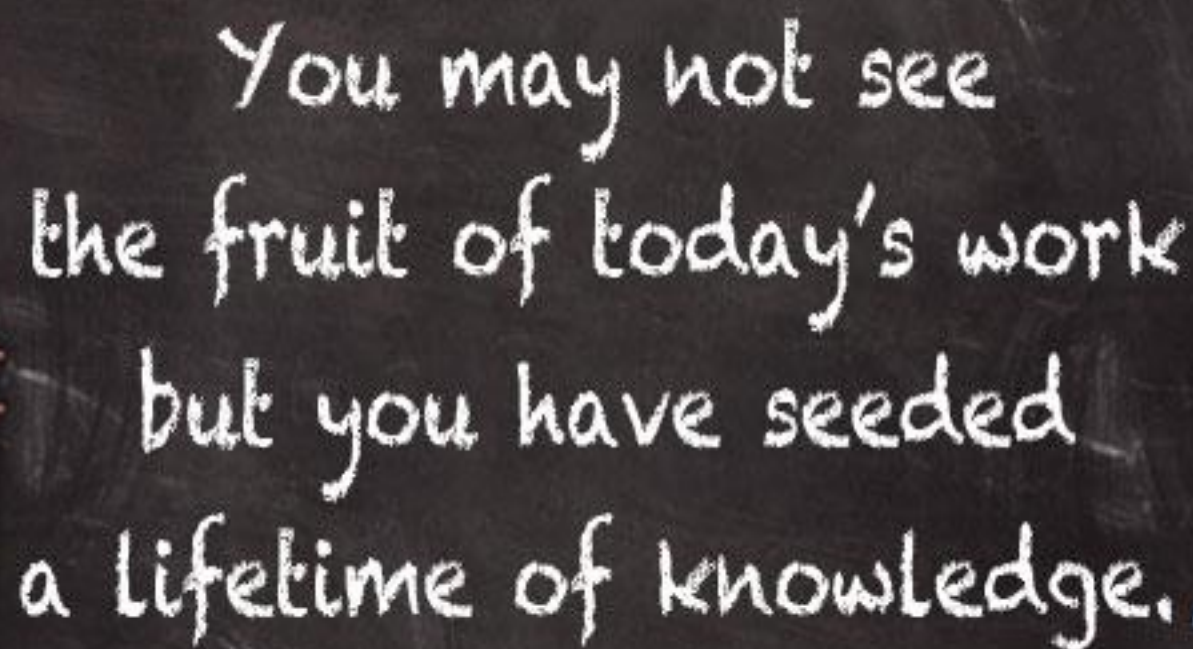 You may not see
the fruit of today's work
but you have seeded
a lifetime of knowledge.